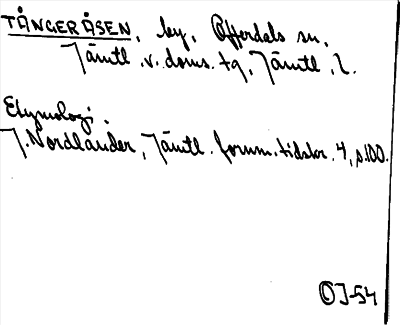 TÅNGERÅSEN, by, Offerdals sn,
Jämtl. v. doms. tg, Jämtl. l.
Etymologi.
J. Nordlander, Jämtl. fornm. tidskr. 4, s.100.
OJ-54